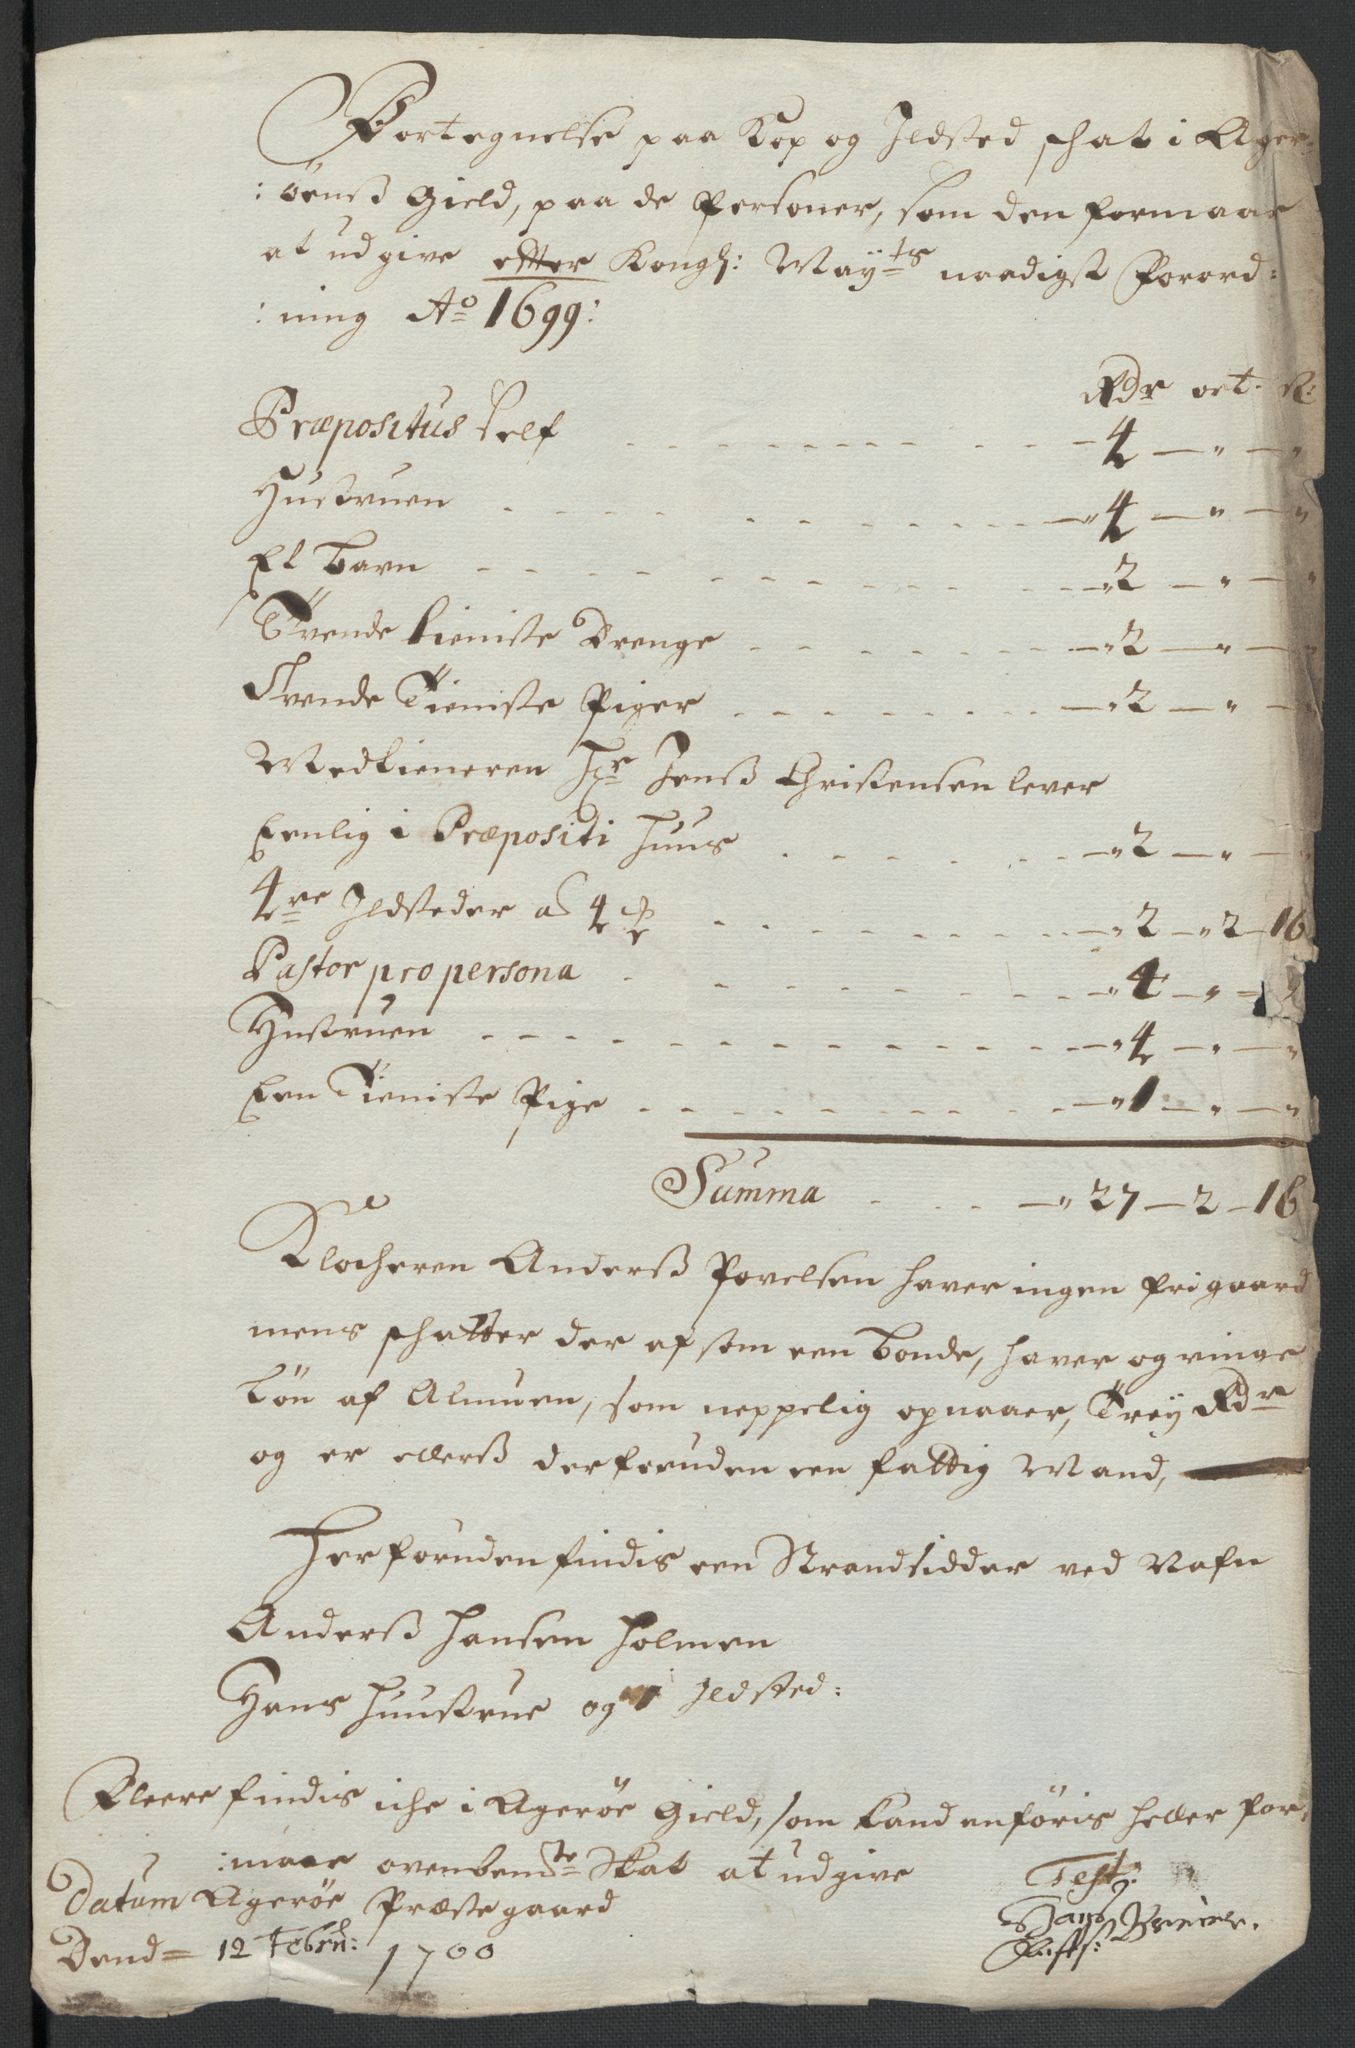 Fortegnelse paa Kop og Ildsted schat i Ager=
:öenß Gield, paa de Personer, som den formaar
at udgive efter Kongl: Mayts naadigst Forord=
:ning Ao 1699:
Rdr ort. ß:
Præpositus self - 4 - " - "
Hustruen - 4 - " - "
Et Barn - 2 - " - "
Tvende tieniste Drenge - 2 - " - "
Tvende Tieniste Piger - 2 - " - "
Medtieneren Hr Jenß Christensen lever
Eenlig i Præpositi Huus - 2 - " - "
4re Ildsteder a 4 - 2 - 2 - 16
Pastor pro persona - 4 - "
Hustruen - 4 - " - "
Een Tieniste Pige - 1 - " - "
Summa - 27 - 2 - 16
Klocheren Anderß Povelsen haver ingen frigaard
mens schatter der af som een Bonde, haver og ringe
Lön af Almuen, som neppelig opnaaer, Trey Rdr
og er ellerß derforuden een fattig Mand,
Herforuden findis een Strandsidder ved Nafn
Anderß Hansen Holmen
Hans Huustrue og 1 Ildsted:
Fleere findis iche i Ageröe Gield, som kand anföris heller for=
:maae ovenbemte Skat at udgive
Datum Ageröe Præstegaard
Dend= 12 Febru: 1700
Test: